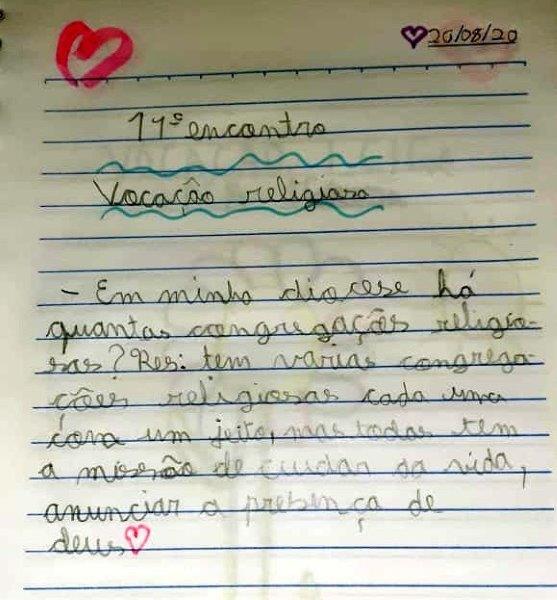 20/08/20
11º encontro
Vocação religiosa
- Em minha diocese há
quantas congregações religio-
sas? Res: tem varias congrega-
ções religiosas cada uma
com um jeito, mas todas tem
a missão de cuidar da vida,
anunciar a presença de
deus